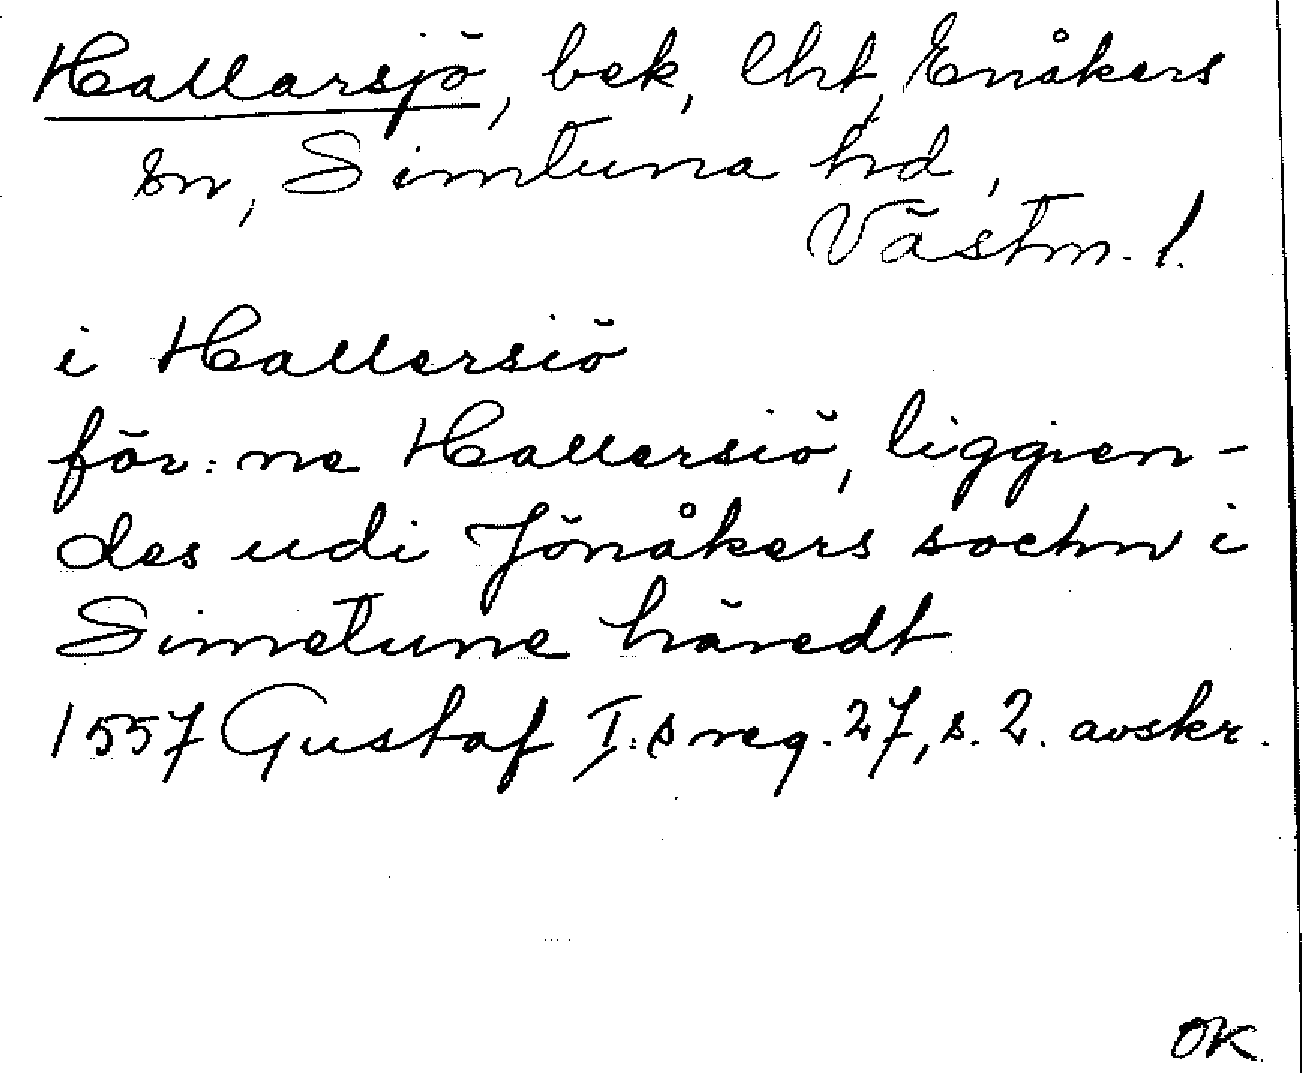 Hallarsjö, bek, Cht, Enåkers
sn, Simtuna hd,
Västm. l.
i Hallersiö
för:ne Hallersiö, liggien-
des udi Jönåkers sochn i
Simetune häredt
1557 Gustaf I:s reg. 27, s. 2. avskr.
OK